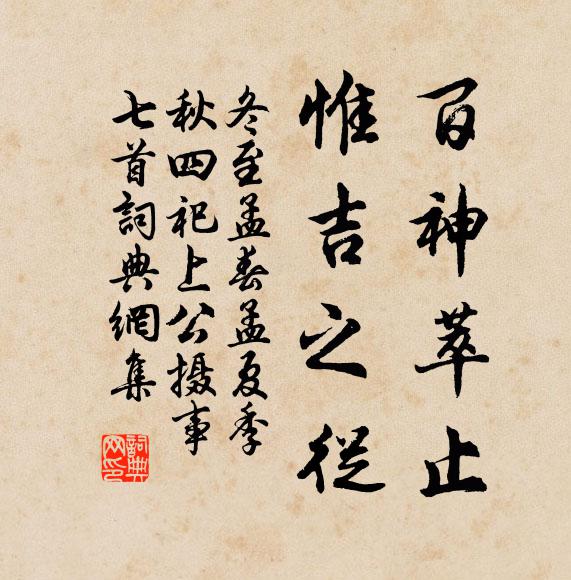 百神萃止
惟吉之從
冬至孟春孟夏季
秋四祀上公摄事
七首詞典網集
詞典
网印